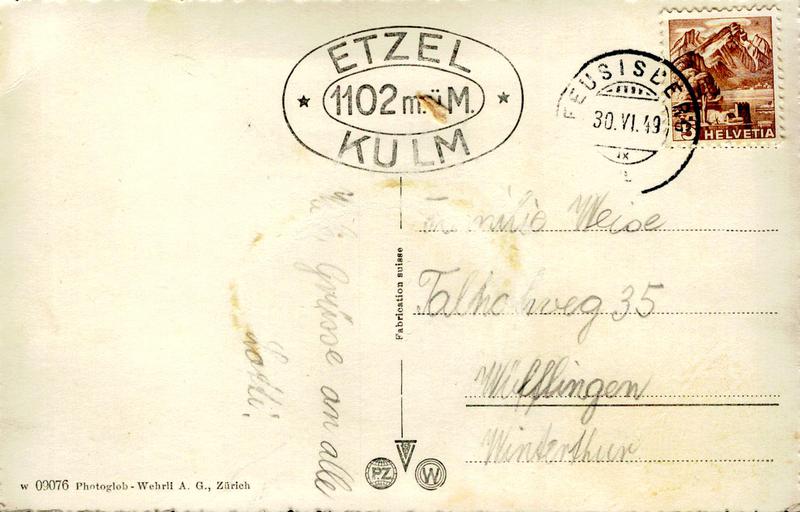 ETZEL
1102 m.ü.M.
KULM
FEUSISBERG
30.VI.49
IX
5 HELVETIA
Grüsse an alle
Fabrication suisse
Weise
35
Wülflingen
Winterthur
PZ
W
w 09076 Photoglob-Wehrli A. G., Zürich